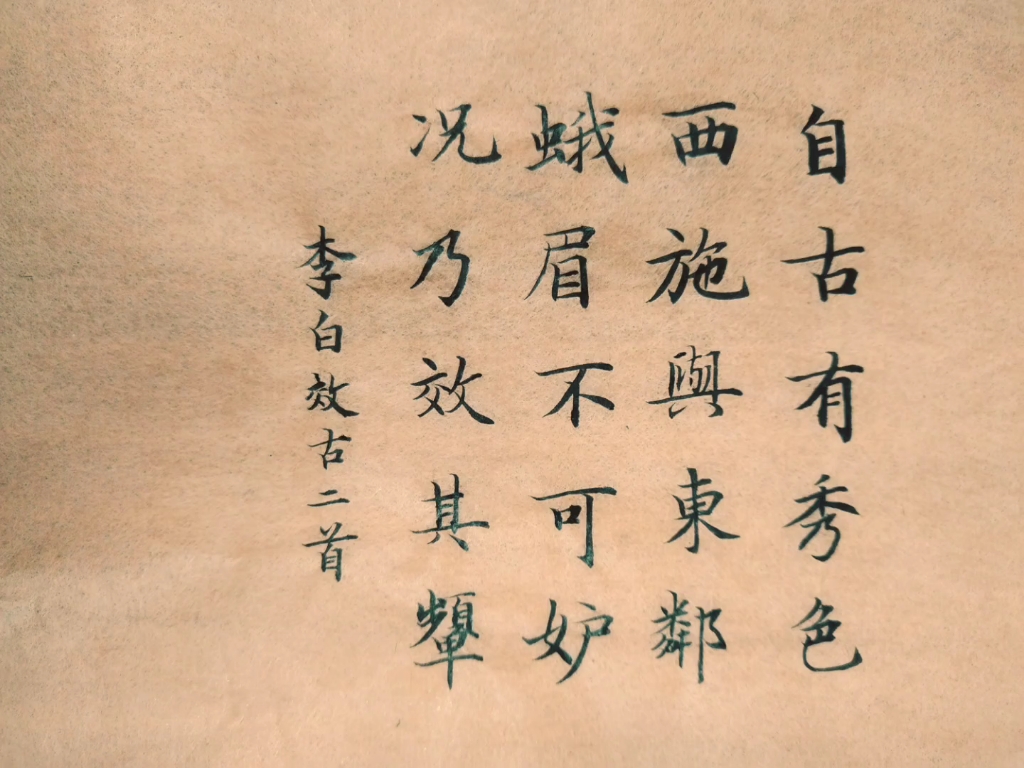 自古有秀色
西施與東鄰
蛾眉不可妒
况乃效其顰
李白效古二首